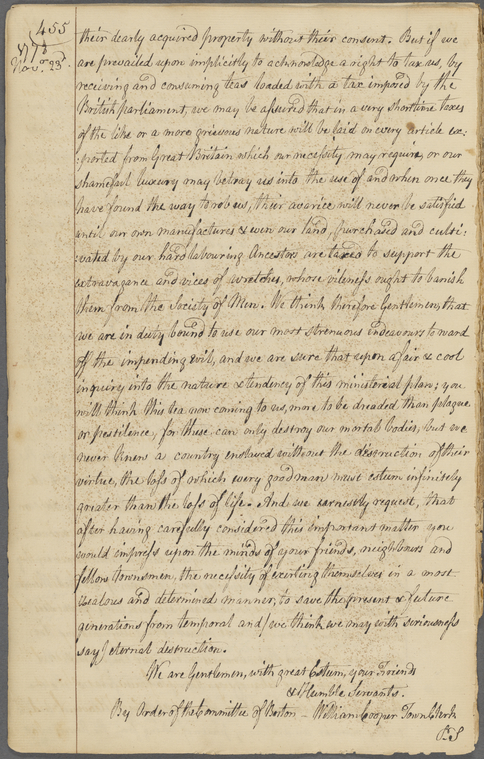 455
1773
Nov.r 23d.
their dearly acquired property without their consent. But if we
are prevailed upon implicitly to acknowledge a right to tax us, by
receiving and consuming teas loaded with a tax imposed by the
British parliament, we may be assured that in a very short time taxes
of the like or a more grievous nature will be laid on every article ex:
:ported from Great Britain which our necessity may require, or our
shamefull luxury may betray us into the use of and when once they
have found the way to rob us, their avarice will never be satisfied
until our own manufactures & even our land, purchased and culti:
:vated by our hard labouring Ancestors are taxed to support the
extravagance and vices of wretches, whose vileness ought to banish
them from the Society of Men. We think therefore Gentlemen, that
we are in duty bound to use our most strenuous endeavours to ward
off the impending evil, and we are sure that upon a fair & cool
inquiry into the nature & tendency of this ministerial plan; you
will think this tea now coming to us, more to be dreaded than plague
or pestilence, for these can only destroy our mortal bodies, but we
never knew a country enslaved without the destruction of their
virtue, the loss of which every good man must esteem infinitely
greater than the loss of life. And we earnestly request, that
after having carefully considered this important matter you
would impress upon the minds of your friends, neighbours and
fellow Townsmen, the necessity of exerting themselves in a most
zealous and determined manner, to save the present & future
generations from temporal and (we think we may with seriousness
say) eternal destruction.
We are Gentlemen, with great Esteem, your Friends
& Humble Servants.
By Order of the Committee of Boston - William Cooper Town Clerk
P.S